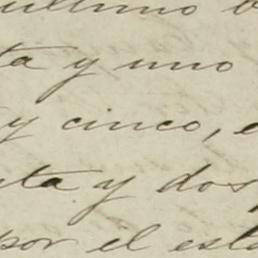 ultimo
ta y uno
y cinco,
ta y dos
por el esta